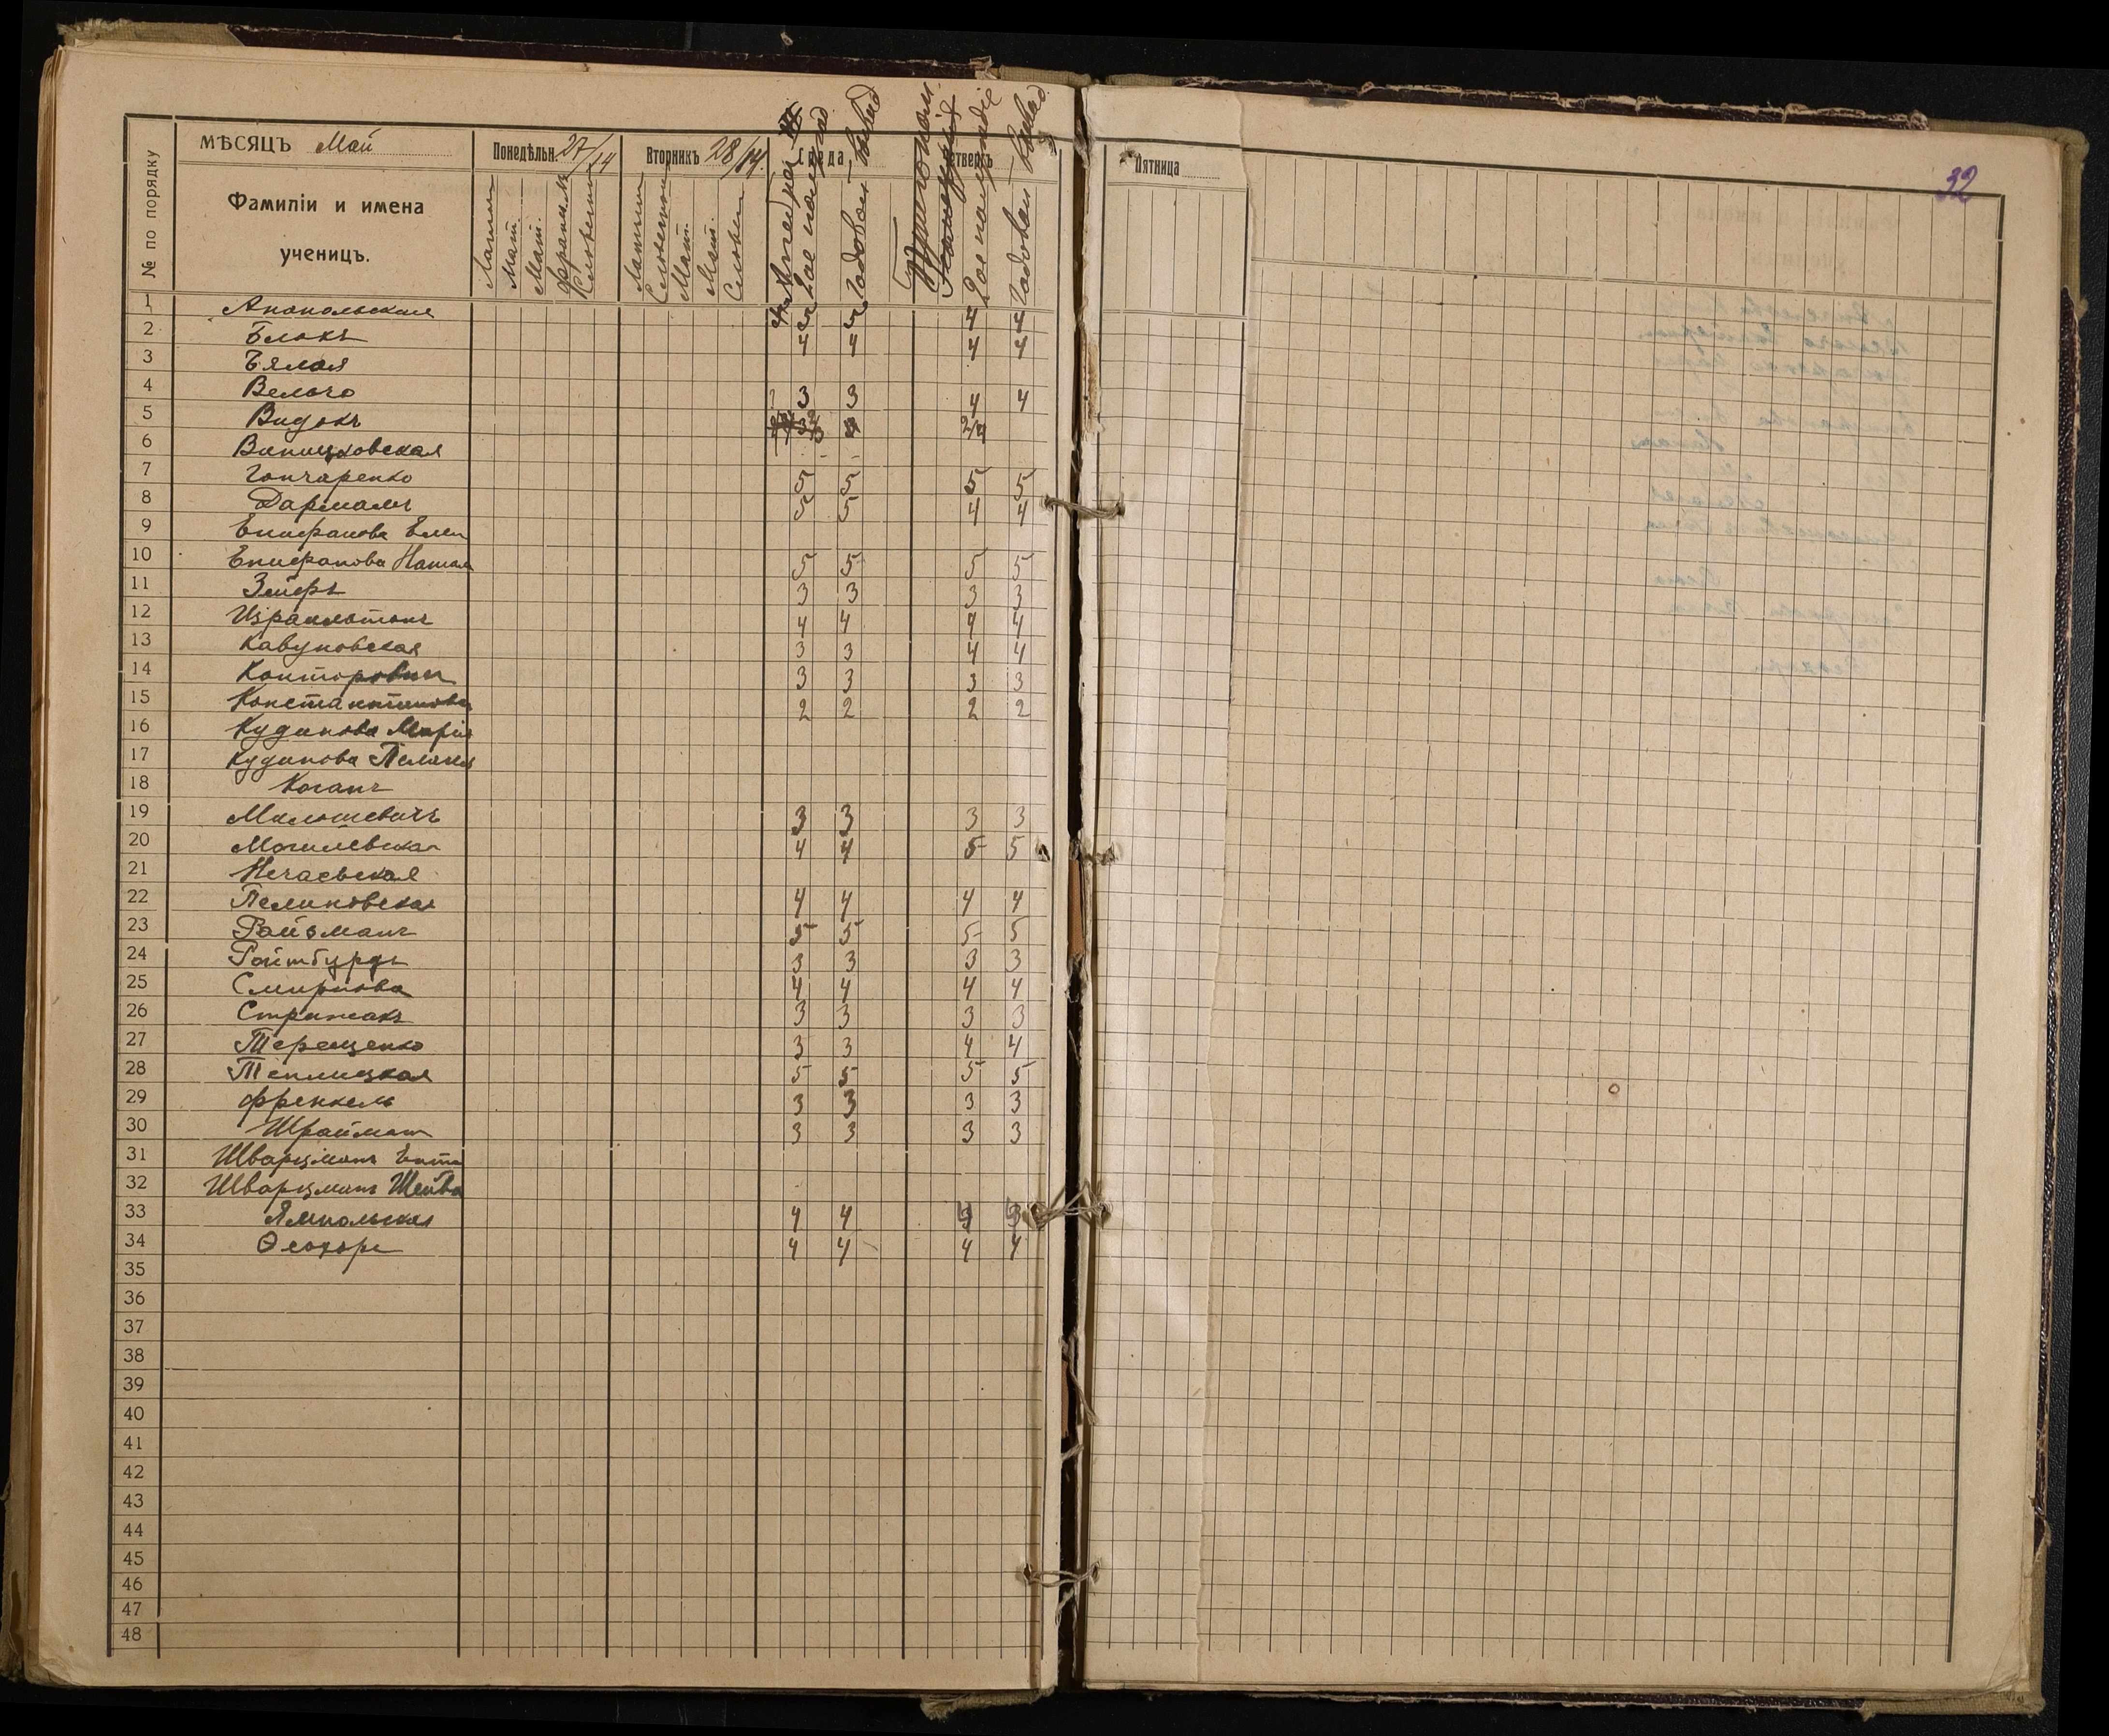 32
МѢСЯЦЪ Май
Понедѣльн. 27/14
Вторникъ 28/14.
Среда
Четвергъ
Пятница
№ по порядку
Фамиліи и имена
ученицъ.
Мат.
Мат.
Мат.
Мат.
2ое полугодіе
Годовой
2ое полугодіе
Годовой
1 Анапольская 4 4 4 4
2 Блокъ 4 4 4 4
3 Бялая
4 Вельго 3 3 4 4
5 Видокъ
6 Виницковская
7 Гончаренко 5 5 5 5
8 Дарманъ 5 5 4 4
9 Епифанова Елен
10 Епифанова Натал 5 5 5 5
11 Зейфъ 3 3 3 3
12 Израильтонъ 4 4 4 4
13 Кавуновская 3 3 4 4
14 Конторовичъ 3 3 3 3
15 Константинова 2 2 2 2
16 Кудинова Марія
17 Кудинова Пелагея
18 Коганъ
19 Милошевичъ 3 3 3 3
20 Могилевская 4 4 5 5
21 Нечаевская
22 Пелиновская 4 4 4 4
23 Райзманъ 5 5 5 5
24 Ройтбурдъ 3 3 3 3
25 Смирнова 4 4 4 4
26 Стрижакъ 3 3 3 3
27 Терещенко 3 3 4 4
28 Теплицкая 5 5 5 5
29 Френкель 3 3 3 3
30 Шрайманъ 3 3 3 3
31 Шварцманъ Ента
32 Шварцманъ Шейва
33 Ямпольская 4 4
34 4 4 4 4
35
36
37
38
39
40
41
42
43
44
45
46
47
48